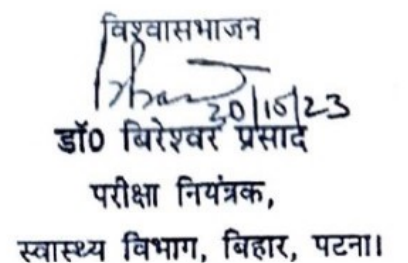 विश्वासभाजन
डॉ0 बिरेश्वर प्रसाद
परीक्षा नियंत्रक,
स्वास्थ्य विभाग, बिहार, पटना।